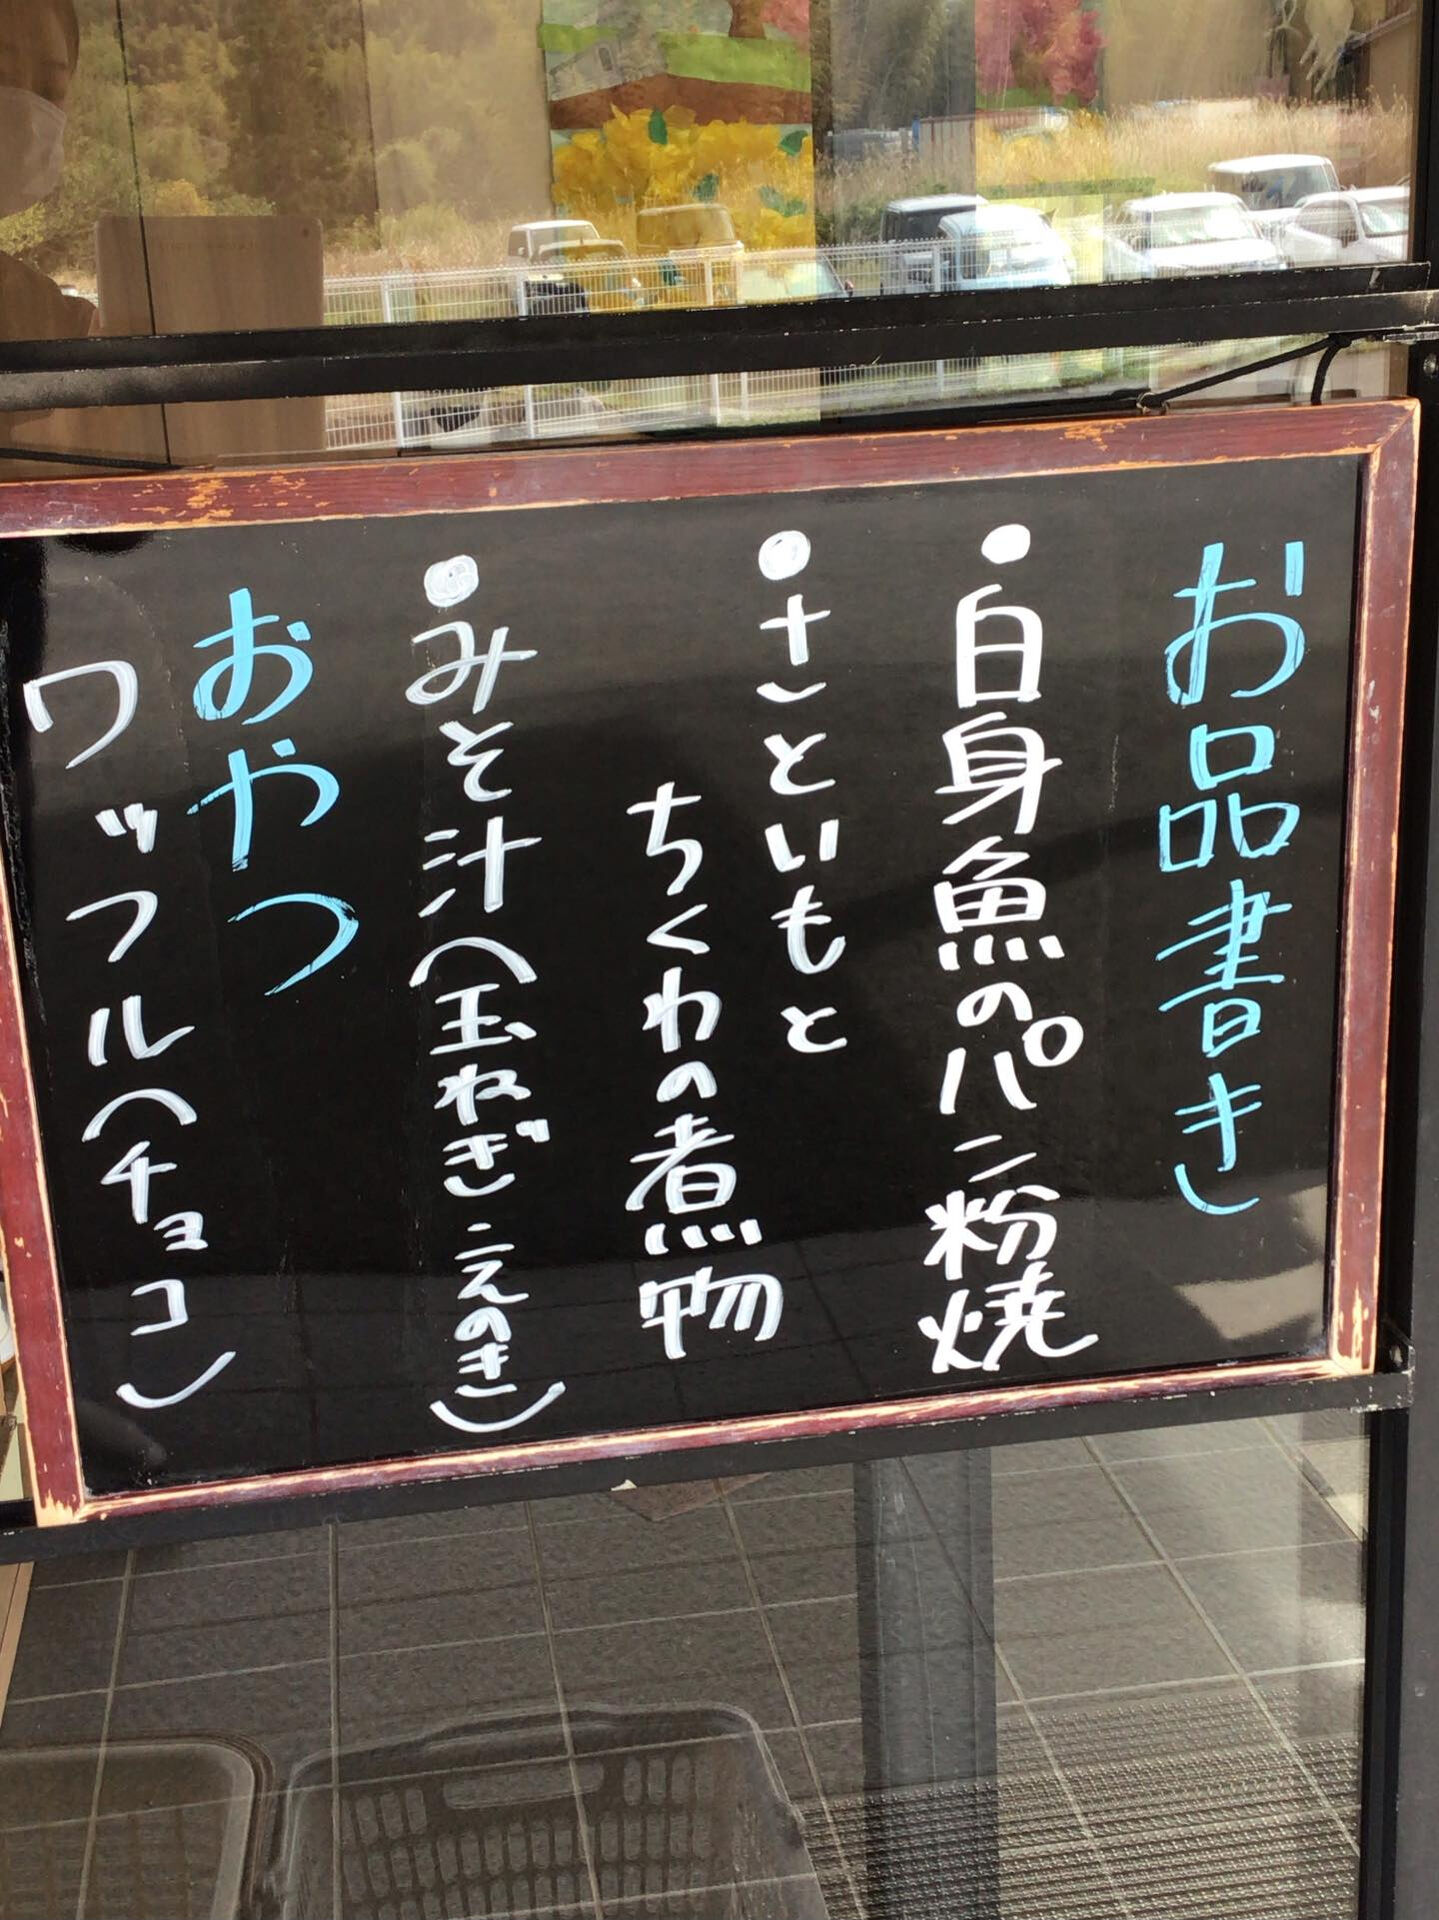 お品書き
・白身魚のパン粉焼
・さといもと
ちくわの煮物
・みそ汁(玉ねぎ、えのき)
おやつ
ワッフル(チョコ)